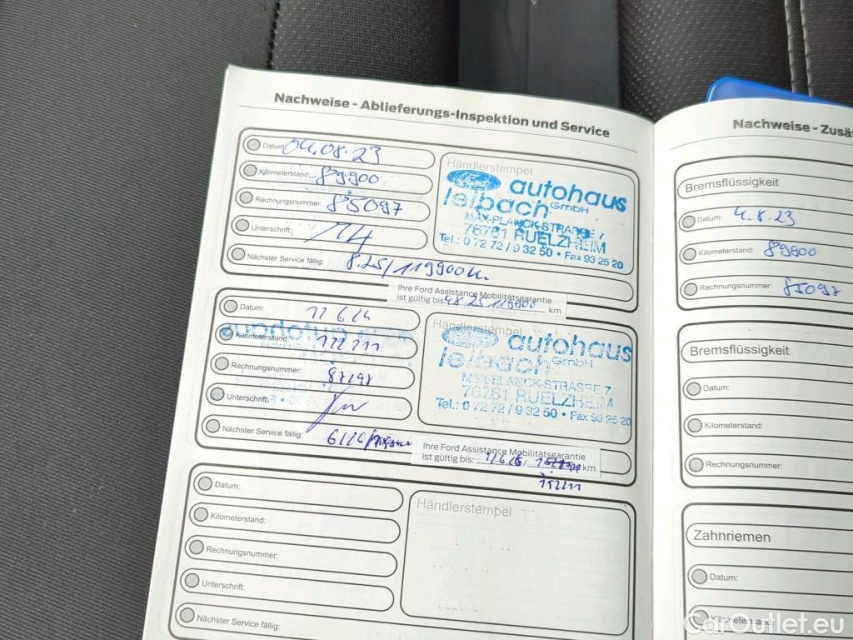 Nachweise - Ablieferungs-Inspektion und Service
Datum: 04.08.23
Kilometerstand: 89900
Rechnungsnummer: 85097
Unterschrift:
Nächster Service fällig: 8.25/119900 km
Händlerstempel
Ford
autohaus
leibach GmbH
MAX-PLANCK-STRASSE 7
76761 RUELZHEIM
Tel.: 0 72 72 / 9 32 50 • Fax 93 25 20
Ihre Ford Assistance Mobilitätsgarantie
ist gültig bis: 4.8.25 119900 km
Datum: 12 6 24
Kilometerstand: 122211
Rechnungsnummer: 87298
Unterschrift:
Nächster Service fällig: 6/26/
Händlerstempel
Ford
autohaus
leibach GmbH
MAX-PLANCK-STRASSE 7
76761 RUELZHEIM
Tel.: 0 72 72 / 9 32 50 • Fax 93 25 20
Ihre Ford Assistance Mobilitätsgarantie
ist gültig bis: km
152211
Datum:
Kilometerstand:
Rechnungsnummer:
Unterschrift:
Nächster Service fällig:
Händlerstempel
Nachweise - Zusä
Bremsflüssigkeit
Datum: 4.8.23
Kilometerstand: 89900
Rechnungsnummer: 85097
Bremsflüssigkeit
Datum:
Kilometerstand:
Rechnungsnummer:
Zahnriemen
Datum:
Kilometerstand:
CarOutlet.eu